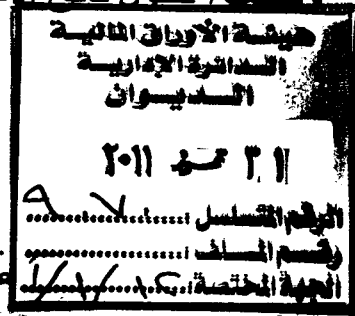 هيئة الأوراق المالية
الدائرة الإدارية
الديوان
٣١ تموز ٢٠١١
الرقم المتسلسل
رقم الملف
الجهة المختصة